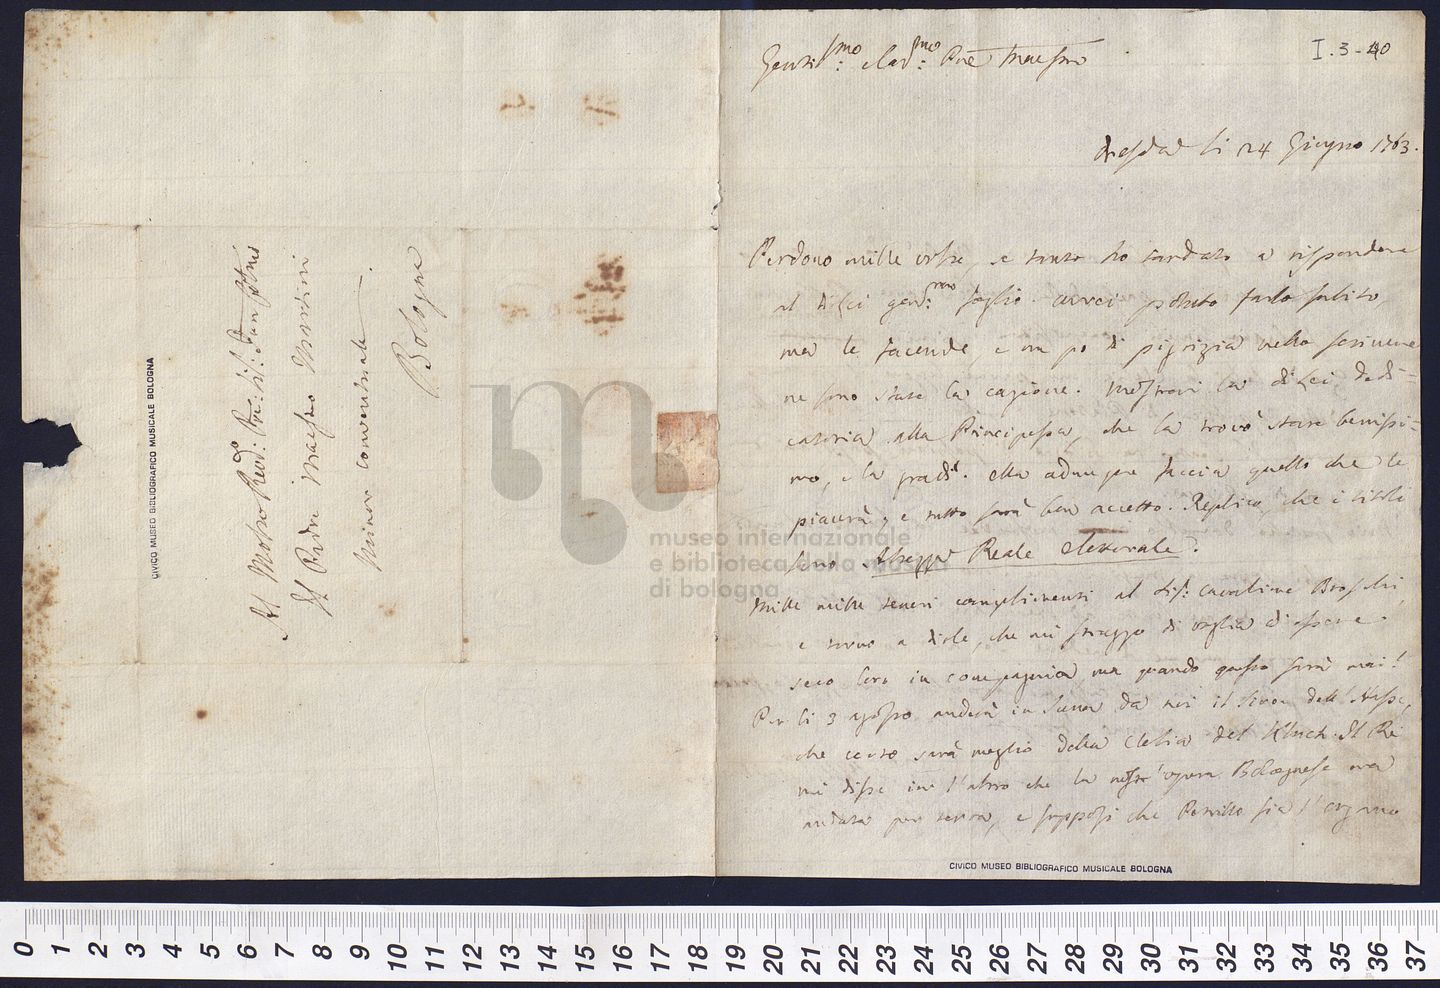 Al Molto Revdo: Pre: Sig: Pron Colmo
Il Padre Maestro Martini
Minor conventuale
Bologna
CIVICO MUSEO BIBLIOGRAFICO MUSICALE BOLOGNA
museo internazionale
e biblioteca della musica
di bologna
I. 3-40
Gentilmo: e Carmo: Pre Maestro
Dresda li 24 Giugno 1763.
Perdono mille volte, se tanto ho tardato a rispondere
al di lei genmo: foglio. avrei potuto farlo subito,
ma le facende, e un po di pigrizia nello scrivere
ne sono state la cagione. Mostrai la di lei dedi=
catoria alla Principessa, che la trovò stare benissi=
mo, e la gradì. Ella adunque faccia quello che le
piacerà, e tutto sarà ben accetto. Replico, che i titoli
sono Altezza Reale Elettorale.
Mille mille teneri complimenti al Sig: Cavaliere Broschi,
e torno a dirle, che mi struggo di voglia d'essere
seco loro in compagnia, ma quando questo sarà mai!
Per li 3 agosto anderà in scena da noi il Siroe dell' Hasse,
che certo sarà meglio della Clelia del Kluch. Il Re
mi disse ier l'altro che la nostr' opera Bolognese era
andata per terra, e supposi che Petrillo sia l'organo
CIVICO MUSEO BIBLIOGRAFICO MUSICALE BOLOGNA
0 1 2 3 4 5 6 7 8 9 10 11 12 13 14 15 16 17 18 19 20 21 22 23 24 25 26 27 28 29 30 31 32 33 34 35 36 37